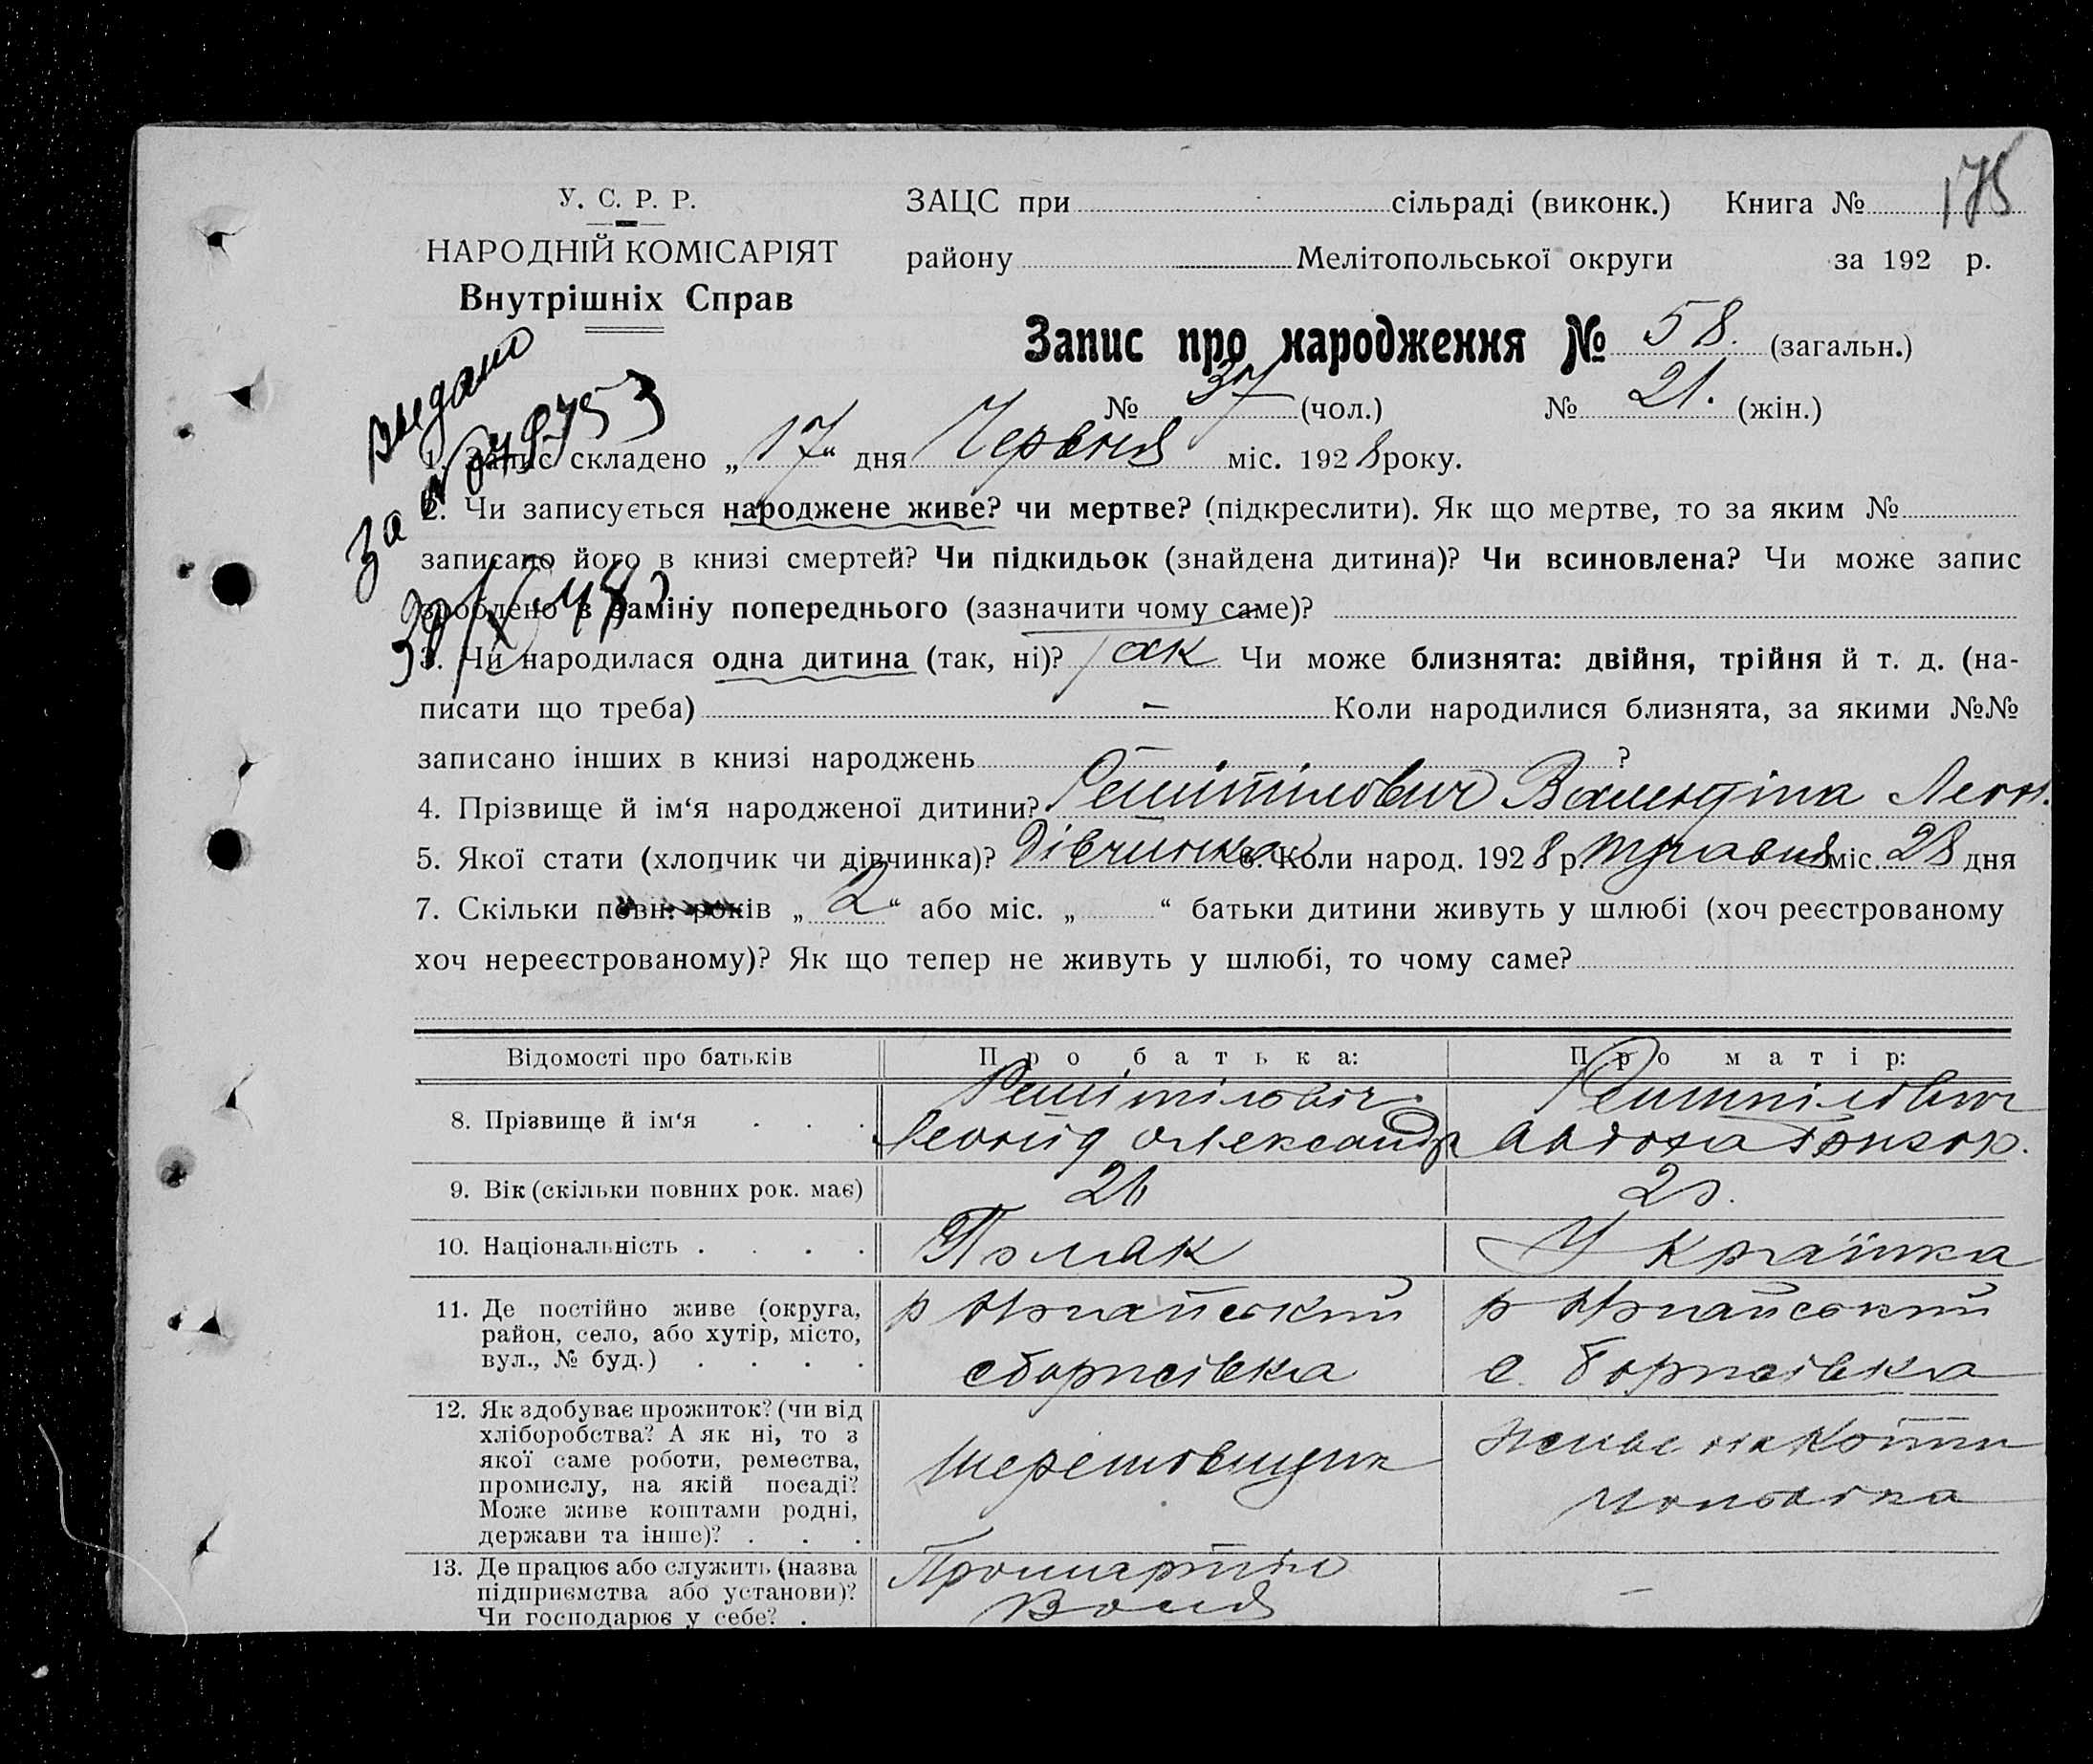 175
У. С. Р. Р.
НАРОДНІЙ КОМІСАРІЯТ
Внутрішніх Справ
ЗАЦС при сільраді (виконк.) Книга №
району Мелітопольської округи за 192 р.
Запис про народження № 58. (загальн.)
№ 37 (чол.) № 21. (жін.)
Выдано
За №
1. Запис складено „17“ дня Червня міс. 1928 року.
2. Чи записується народжене живе? чи мертве? (підкреслити). Як що мертве, то за яким №
записано його в книзі смертей? Чи підкидьок (знайдена дитина)? Чи всиновлена? Чи може запис
зроблено в заміну попереднього (зазначити чому саме)?
3. Чи народилася одна дитина (так, ні)? Так Чи може близнята: двійня, трійня й т. д. (на-
писати що треба) — Коли народилися близнята, за якими №№
записано інших в книзі народжень — ?
4. Прізвище й ім‘я народженої дитини? Решітілович Валентіна Леон.
5. Якої стати (хлопчик чи дівчинка)? Дівчинка 6. Коли народ. 1928 р. травня міс. 28 дня
7. Скільки повн. років „2“ або міс. „ “ батьки дитини живуть у шлюбі (хоч реєстрованому
хоч нереєстрованому)? Як що тепер не живуть у шлюбі, то чому саме?
Відомості про батьків Про батька: Про матір:
8. Прізвище й ім‘я . . .
Решітілович
Леонід Олександр
Решітілович
Григор.
9. Вік (скільки повних рок. має)
26
10. Національність . . . .
Поляк
Українка
11. Де постійно живе (округа,
район, село, або хутір, місто,
вул., № буд.) . . . .
с Борисівка
с. Борисівка
12. Як здобуває прожиток? (чи від
хліборобства? А як ні, то з
якої саме роботи, ремества,
промислу, на якій посаді?
Може живе коштами родні,
держави та інше)? . . .
Живе на кошти
чоловіка
13. Де працює або служить (назва
підприємства або установи)?
Чи господарює у себе? .
Промартіль
Воля
—